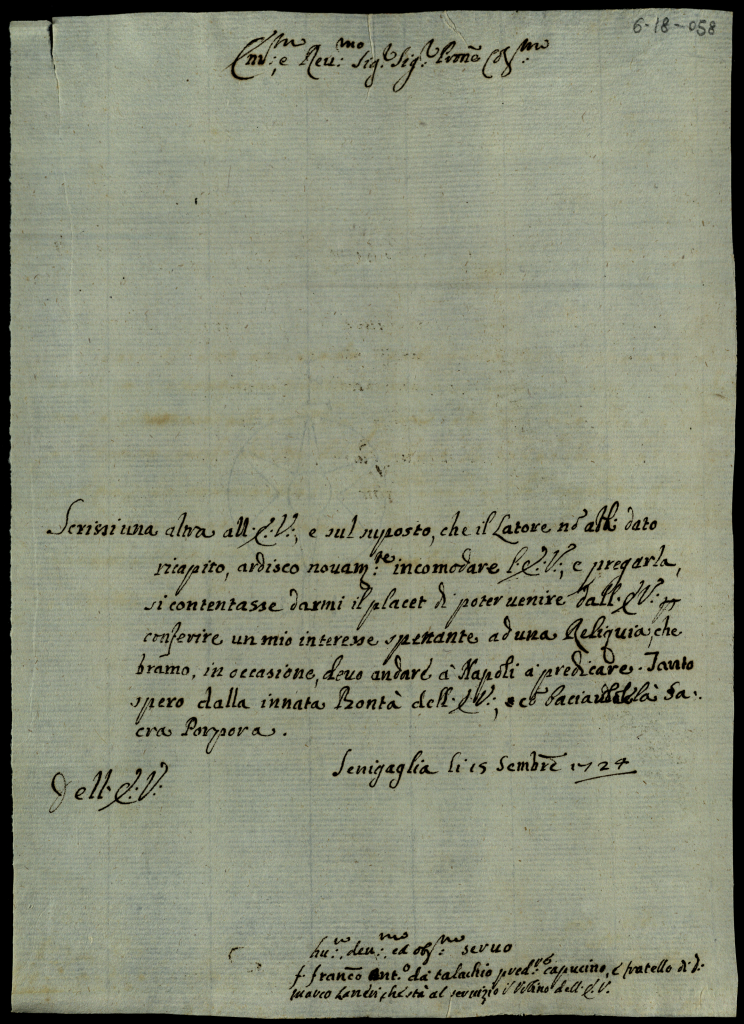 6-18-058
Em:mo, e Reu:mo Sig:r Sig:r Prone Col:mo
Scrissi una altra all'E:V:, e sul suposto, che il Latore nō abb: dato
ricapito, ardisco nouam:te incomodare l'E:V:, e pregarla,
si contentasse darmi il placet di poter uenire dall'E:V:
conferire un mio interesse spettante ad una Reliquia, che
bramo, in occasione, deuo andare à Napoli à predicare. Tanto
spero dalla innata Bontà dell'E:V:, e cō la Sa:
cra Porpora.
Senigaglia li 15 Sembrē 1724
Dell'E:V:
hu:o, deu:mo ed obl:mo seruo
f. Francō Ant.o da talachio pred:re capucino, è fratello di d:
Marco Landri, ch'stà al seruizio dell'E.V.